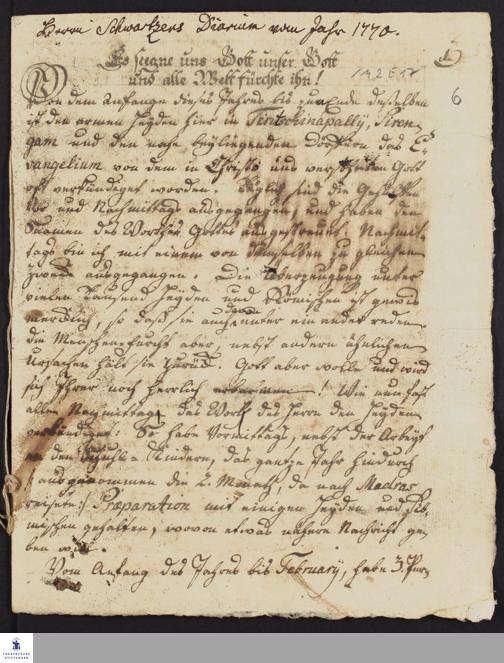 Herrn Schwartzers Diarium vom Jahr 1770.
Es seegne uns Gott unser Gott
und alle Welt fürchte ihn!
1)
6
Von dem Anfange dieses Jahres bis zu Ende desselben
ist den armen Heyden hier in Tiritschinapally, Siren-
gam und den nahe beyliegenden Dörffern das E-
vangelium von dem in Christo uns versöhnten Gott
oft verkündiget worden. Täglich sind die Gehülffen
Vor und Nachmittags ausgegangen, und haben den
Saamen des Wortes Gottes ausgestreuet. Nachmit-
tags bin ich mit einem von denselben zu gleichem
Zweck ausgegangen. Die Überzeugung unter
vielen Tausend Heyden und Römischen ist
so daß sie auch unter einander reden
die Menschen-furcht aber, nebst andern ähnlichen
Ursachen hält sie zurück. Gott aber wolle und wird
sich Ihrer noch herrlich erbarmen! Wie nun fast
allen Nachmittag das Wort des Herrn den Heyden
verkündiget: So habe Vormittags, nebst der Arbeyt
an den Schuhl-Kindern, das gantze Jahr hindurch
ausgenommen die 2. Monath, da nach Madras
reisete Præparation mit einigen Heyden und Rö-
mischen gehalten, wovon etwas nähere Nachricht ge-
ben will.
Vom Anfang des Jahres bis February, habe 3. Per-
FRANCKESCHE
STIFTUNGEN